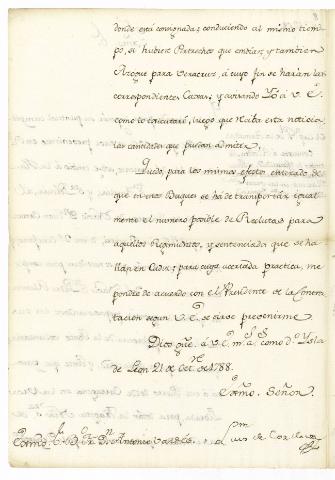 donde está consignada; conduciendo al mismo tiem-
po, si hubiere Pertrechos que embiar, y tambien
Azogue para Veracruz, á cuyo fin se harán las
correspondientes Caxas; y avisando Yo á V. E.
como lo executaré, luego que reciba esta noticia,
las cantidades que puedan admitir.
Quedo, para los mismos efectos enterado de
que en otros Buques se há de transportar igual-
mente el numero posible de Reclutas para
aquellos Regimientos, y sentenciados que se ha-
llan en Cadiz; para cuya acertada practica, me
pondré de acuerdo con el Presidente de la Contra-
tacion segun V. E. se sirve prevenirme.
Dios gue. á V. E. m. a. como d.o Ysla
de Leon 21 de Oct.re de 1788.
Exmo. Señor.
Exmo. S.r B.o Fr. Dn. Antonio Valdés.
Luis de Cordova